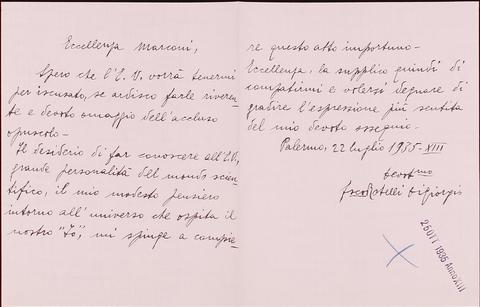 Eccellenza Marconi,
Spero che l'E.V. vorrà tenermi
per iscusato, se ardisco farle riveren-
te e devoto omaggio dell'accluso
opuscolo-
Il desiderio di far conoscere all'E.V,
grande personalità del mondo scien-
tifico, il mio modesto pensiero
intorno all'universo che ospita il
nostro "Io", mi spinge a compie-
re questo atto importuno-
Eccellenza, la supplico quindi di
compatirmi e volersi degnare di
gradire l'espressione più sentita
del mio devoto ossequio-
Palermo, 22 luglio 1935-XIII
devotmo
Digiorgis